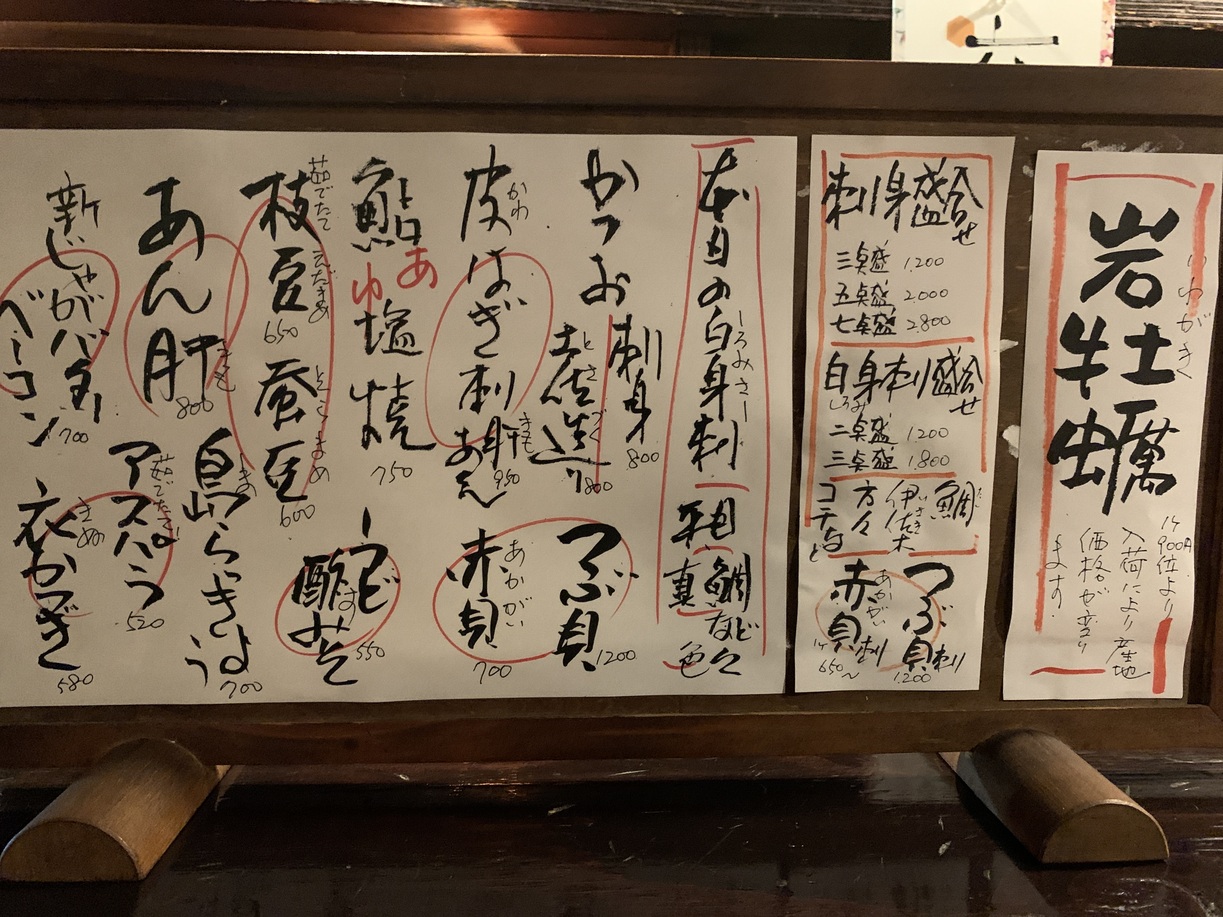 岩牡蠣
いわがき
900円位より
入荷により産地
価格が変り
ます
刺身盛合せ
三点盛 1,200
五点盛 2,000
七点盛 2,800
白身刺盛合せ
しろみ
二点盛 1200
三点盛 1,800
鯛
伊佐木
いさき
方々
つぶ貝刺
1,200
赤貝刺
あかがい
650〜
本日の白身刺
しろみさし
鯛など
真
色々
かつお
刺身
800
土佐造り
とさづくり
800
つぶ貝
1200
皮はぎ刺
かわ
肝あえ
きも
950
赤貝
あかがい
700
鮎塩焼
あゆ
750
酢みそ
す
550
茹でたて
枝豆
えだまめ
650
蚕豆
まめ
600
あん肝
きも
800
島らっきょう
しま
700
新じゃがバター
ベーコン
700
アスパラ
520
衣かつぎ
きぬ
580